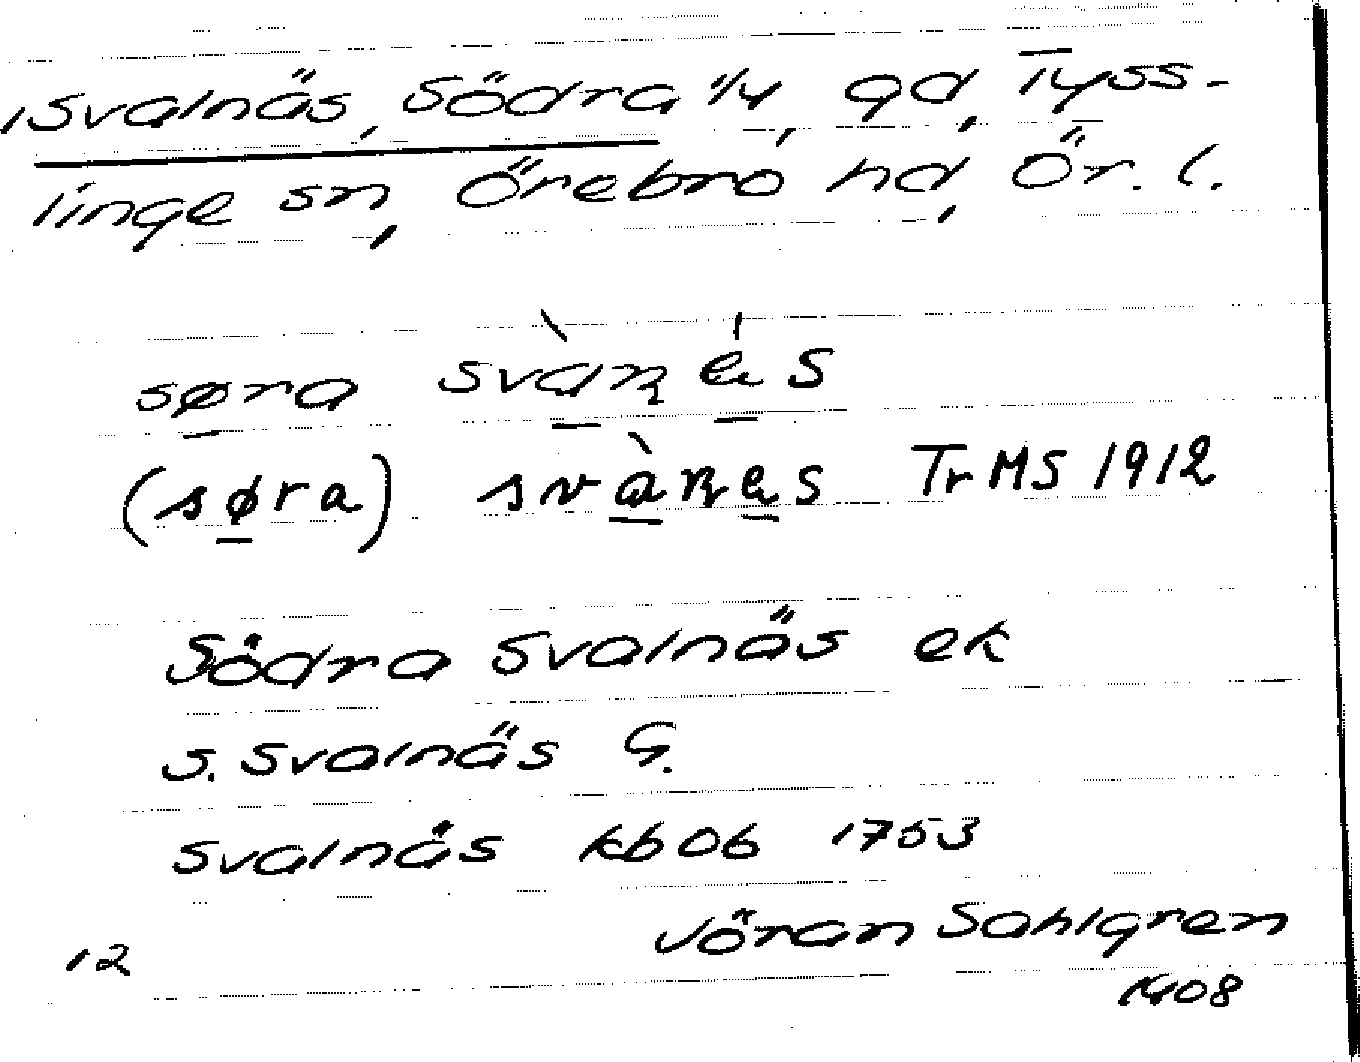 Svalnäs, Södra 1/4, gd, Tyss-
linge sn, Örebro hd, Ör. l.
søra svàṉǽs
(søra) svàṉæs Tr MS 1912
Södra Svalnäs ek
S. Svalnäs G.
Svalnäs kbob 1753
Jöran Sahlgren
12
1908